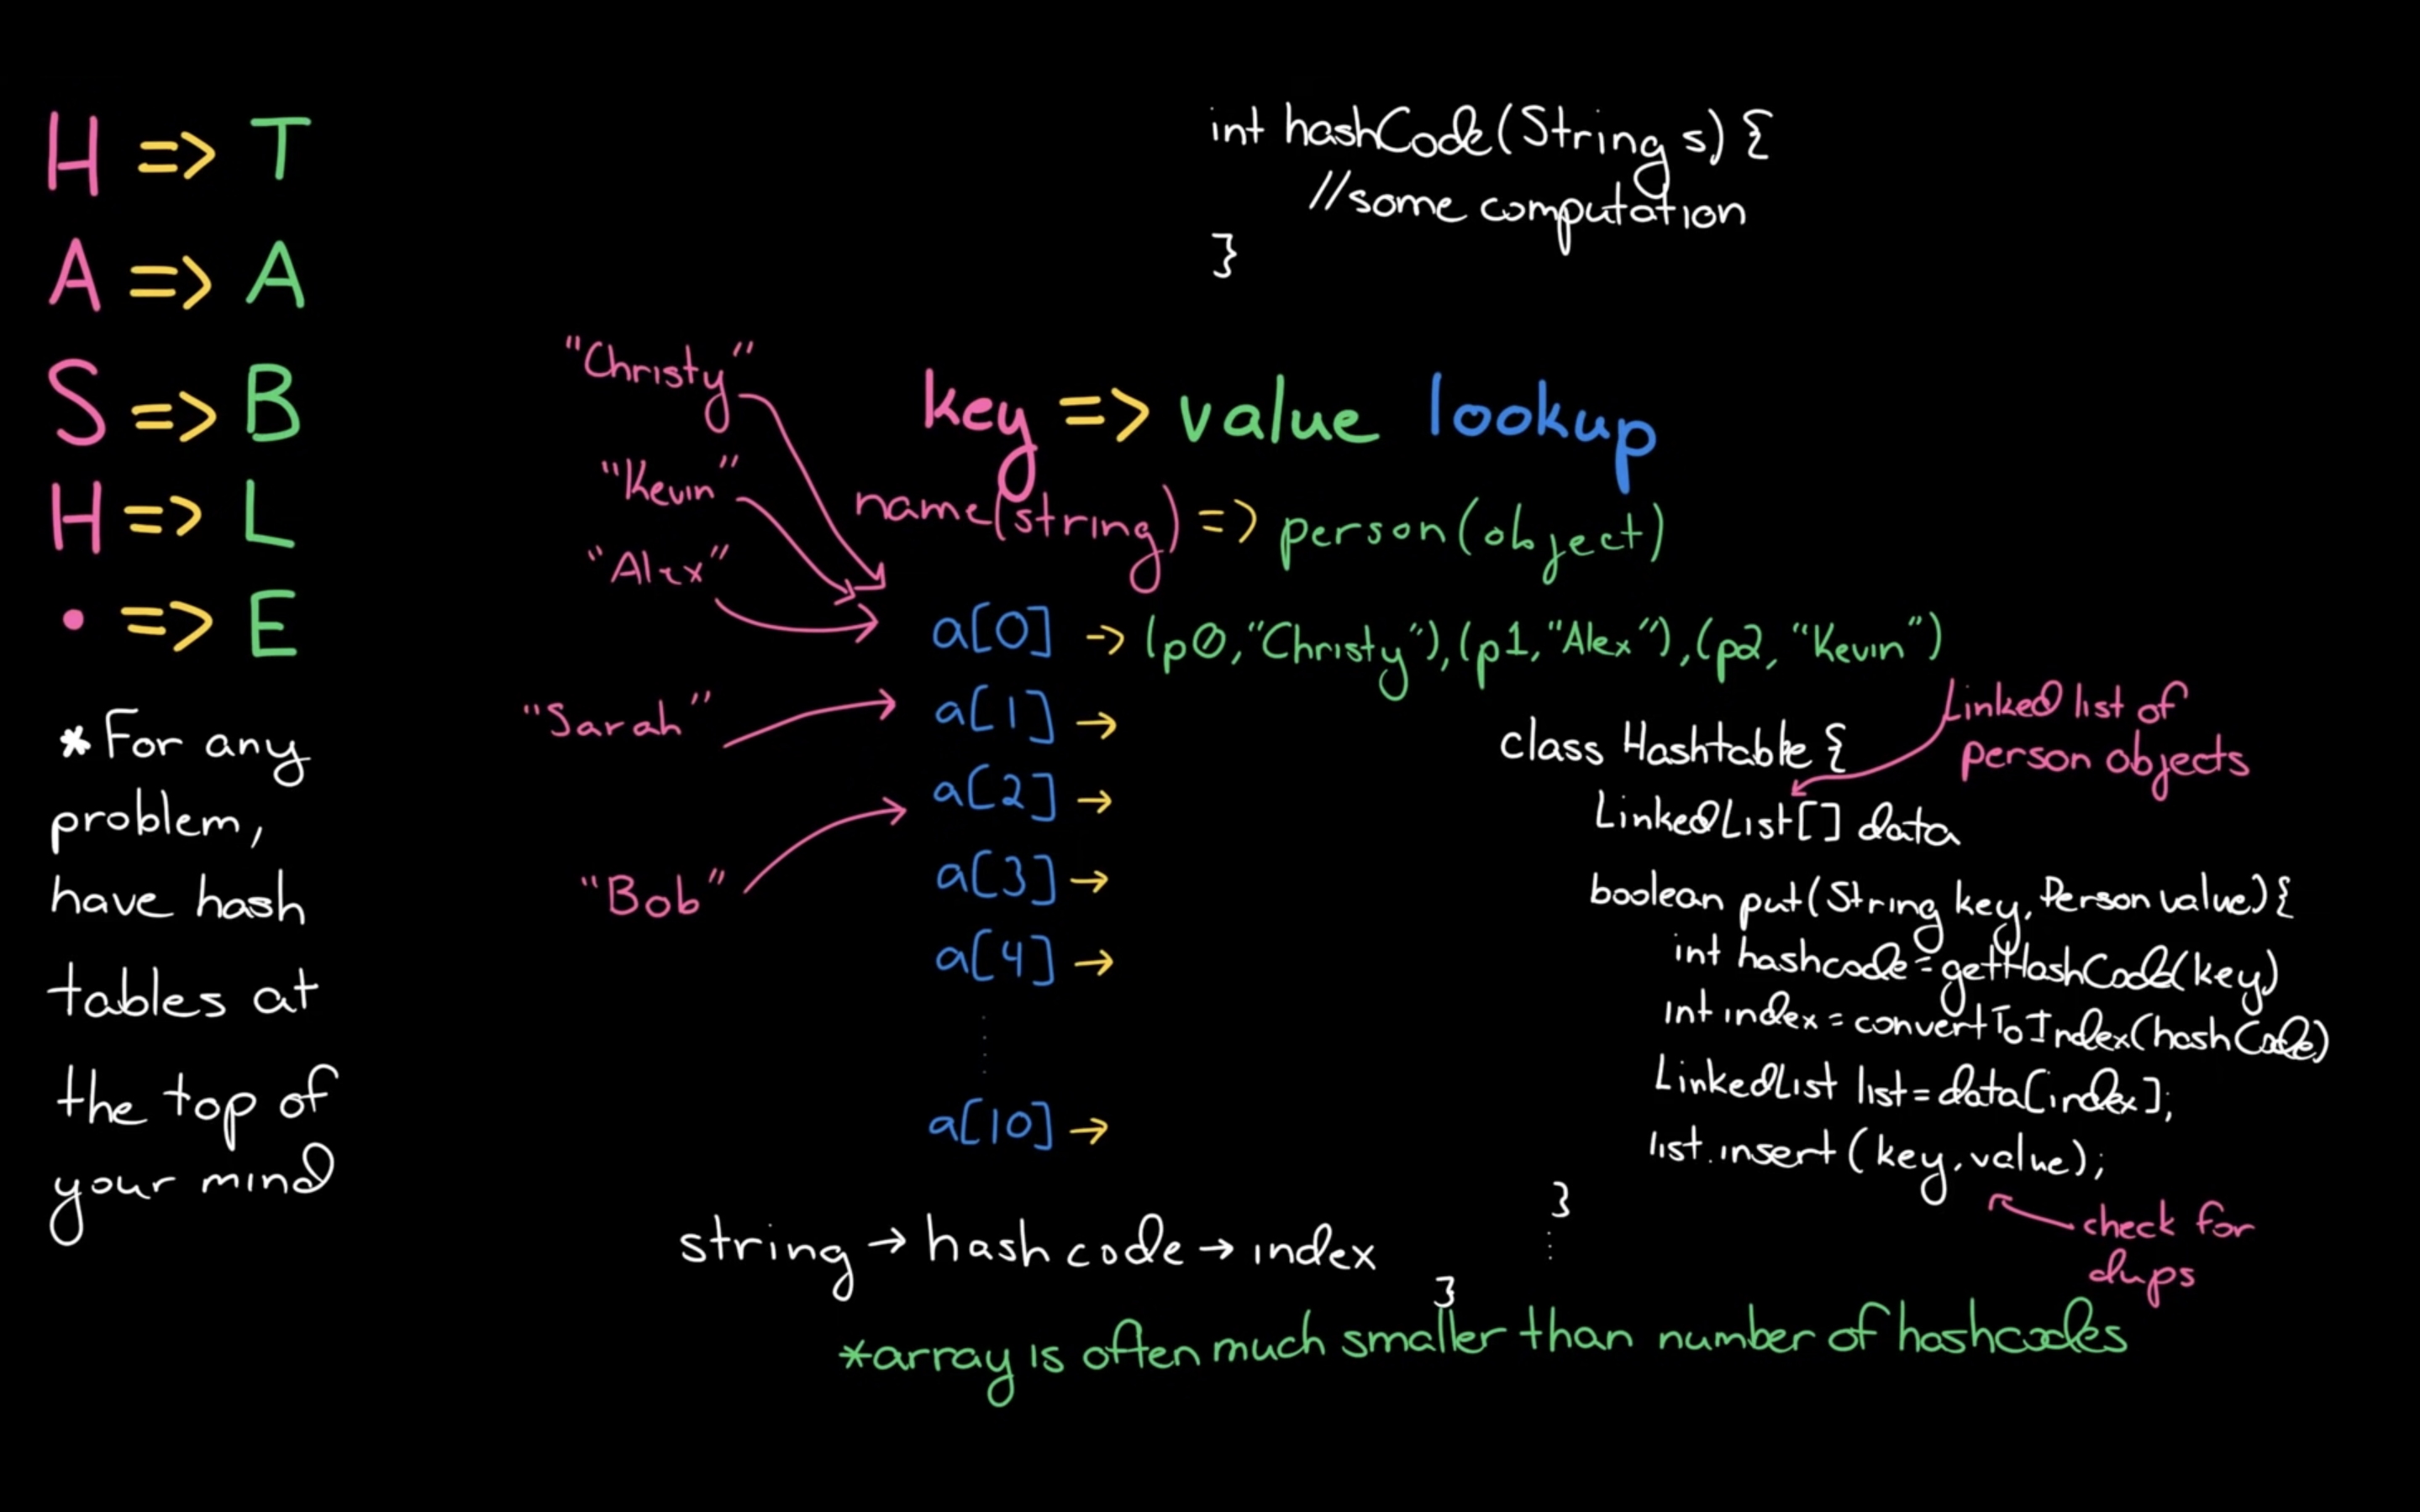 H => T
A => A
S => B
H => L
• => E
*For any
problem,
have hash
tables at
the top of
your mind
int hashCode(String s) {
//some computation
}
key => value lookup
name(string) => person(object)
"Christy"
"Kevin"
"Alex"
"Sarah"
"Bob"
a[0] -> (p0,"Christy"),(p1,"Alex"),(p2, "Kevin")
a[1] →
a[2] →
a[3] →
a[4] →
a[10] →
string → hash code → index
Linked list of
person objects
class Hashtable {
LinkedList[] data
boolean put(String key, Person value){
int hashcode = getHashCode(key)
int index = convertToIndex(hashCode)
LinkedList list = data[index];
list.insert (key, value);
}
check for
dups
}
*array is often much smaller than number of hashcodes